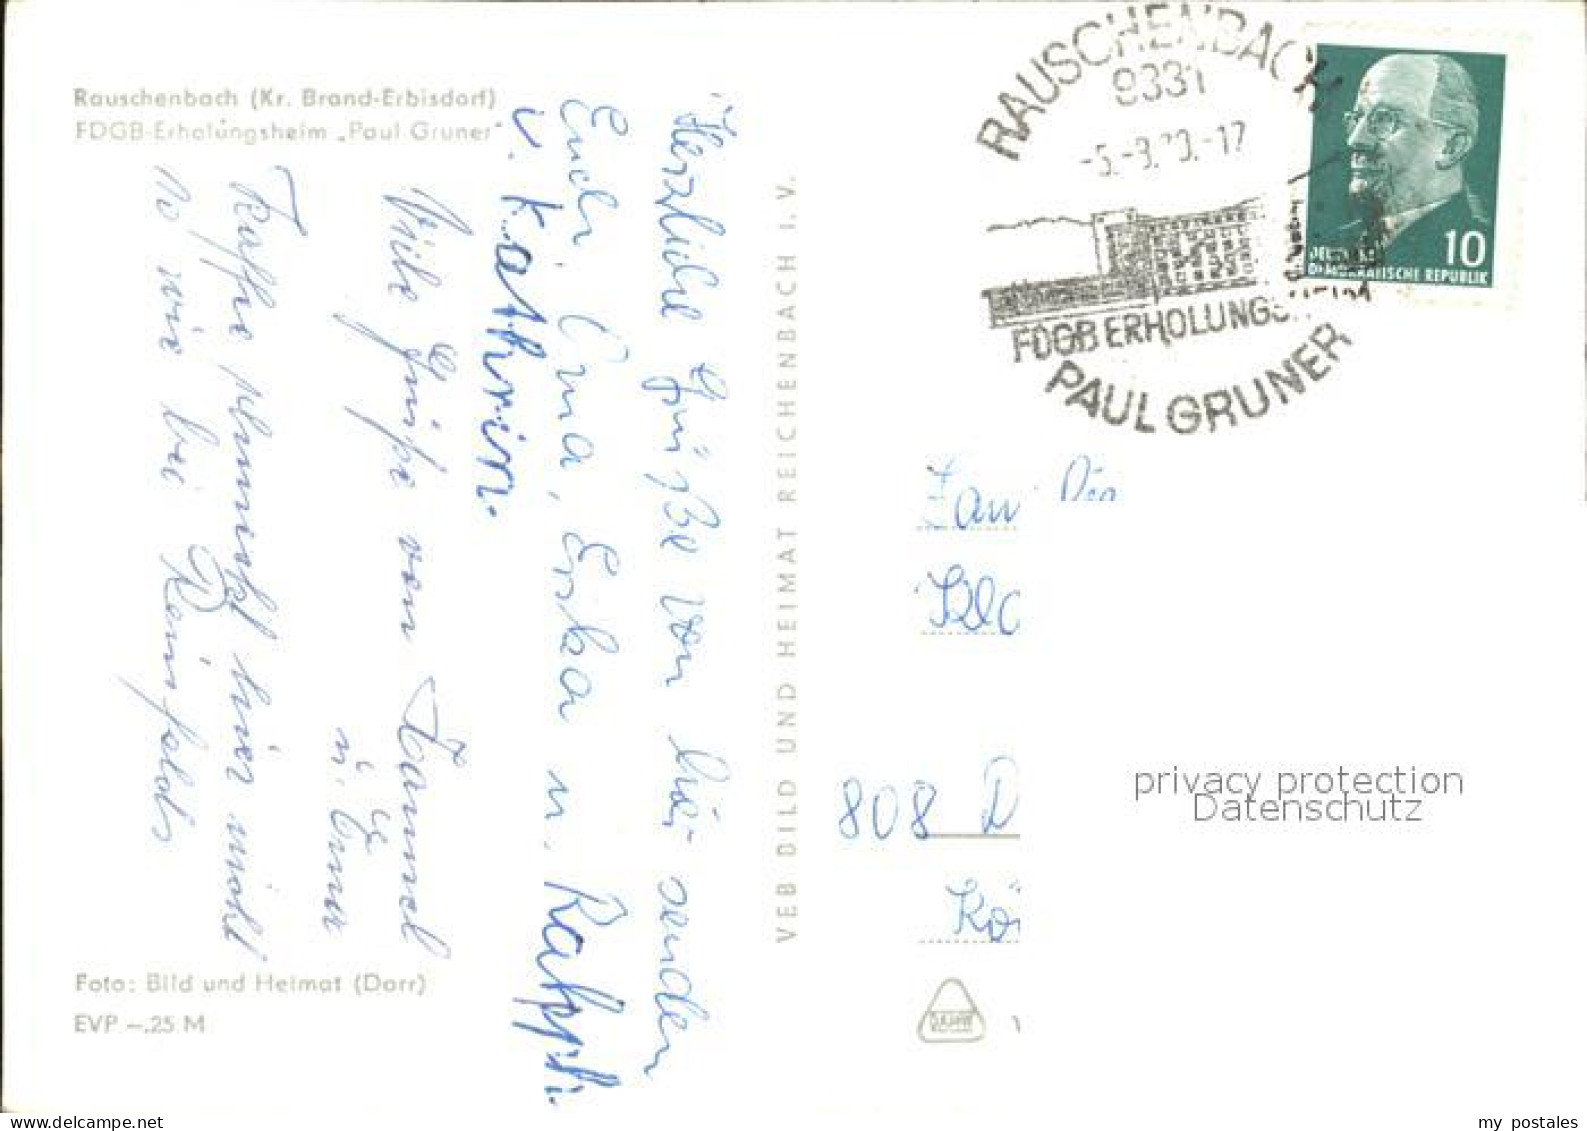 Rauschenbach (Kr. Brand-Erbisdorf)
FDGB-Erholungsheim „Paul Gruner"
Herzliche Grüße von hier senden
Euch, Oma, Erika u. Ralph.
u. Kathrin.
Viele Grüße von
u. Oma
Kaffee schmeckt hier nicht
so wie bei Reinholds
Foto: Bild und Heimat (Darr)
EVP -.25 M
VEB BILD UND HEIMAT REICHENBACH I. V.
RAUSCHENBACH
9331
FDGB ERHOLUNGSHEIM
PAUL GRUNER
10
DEUTSCHE
DEMOKRATISCHE REPUBLIK
Fam
808 D
Kö
privacy protection
Datenschutz
delcampe.net
my postales